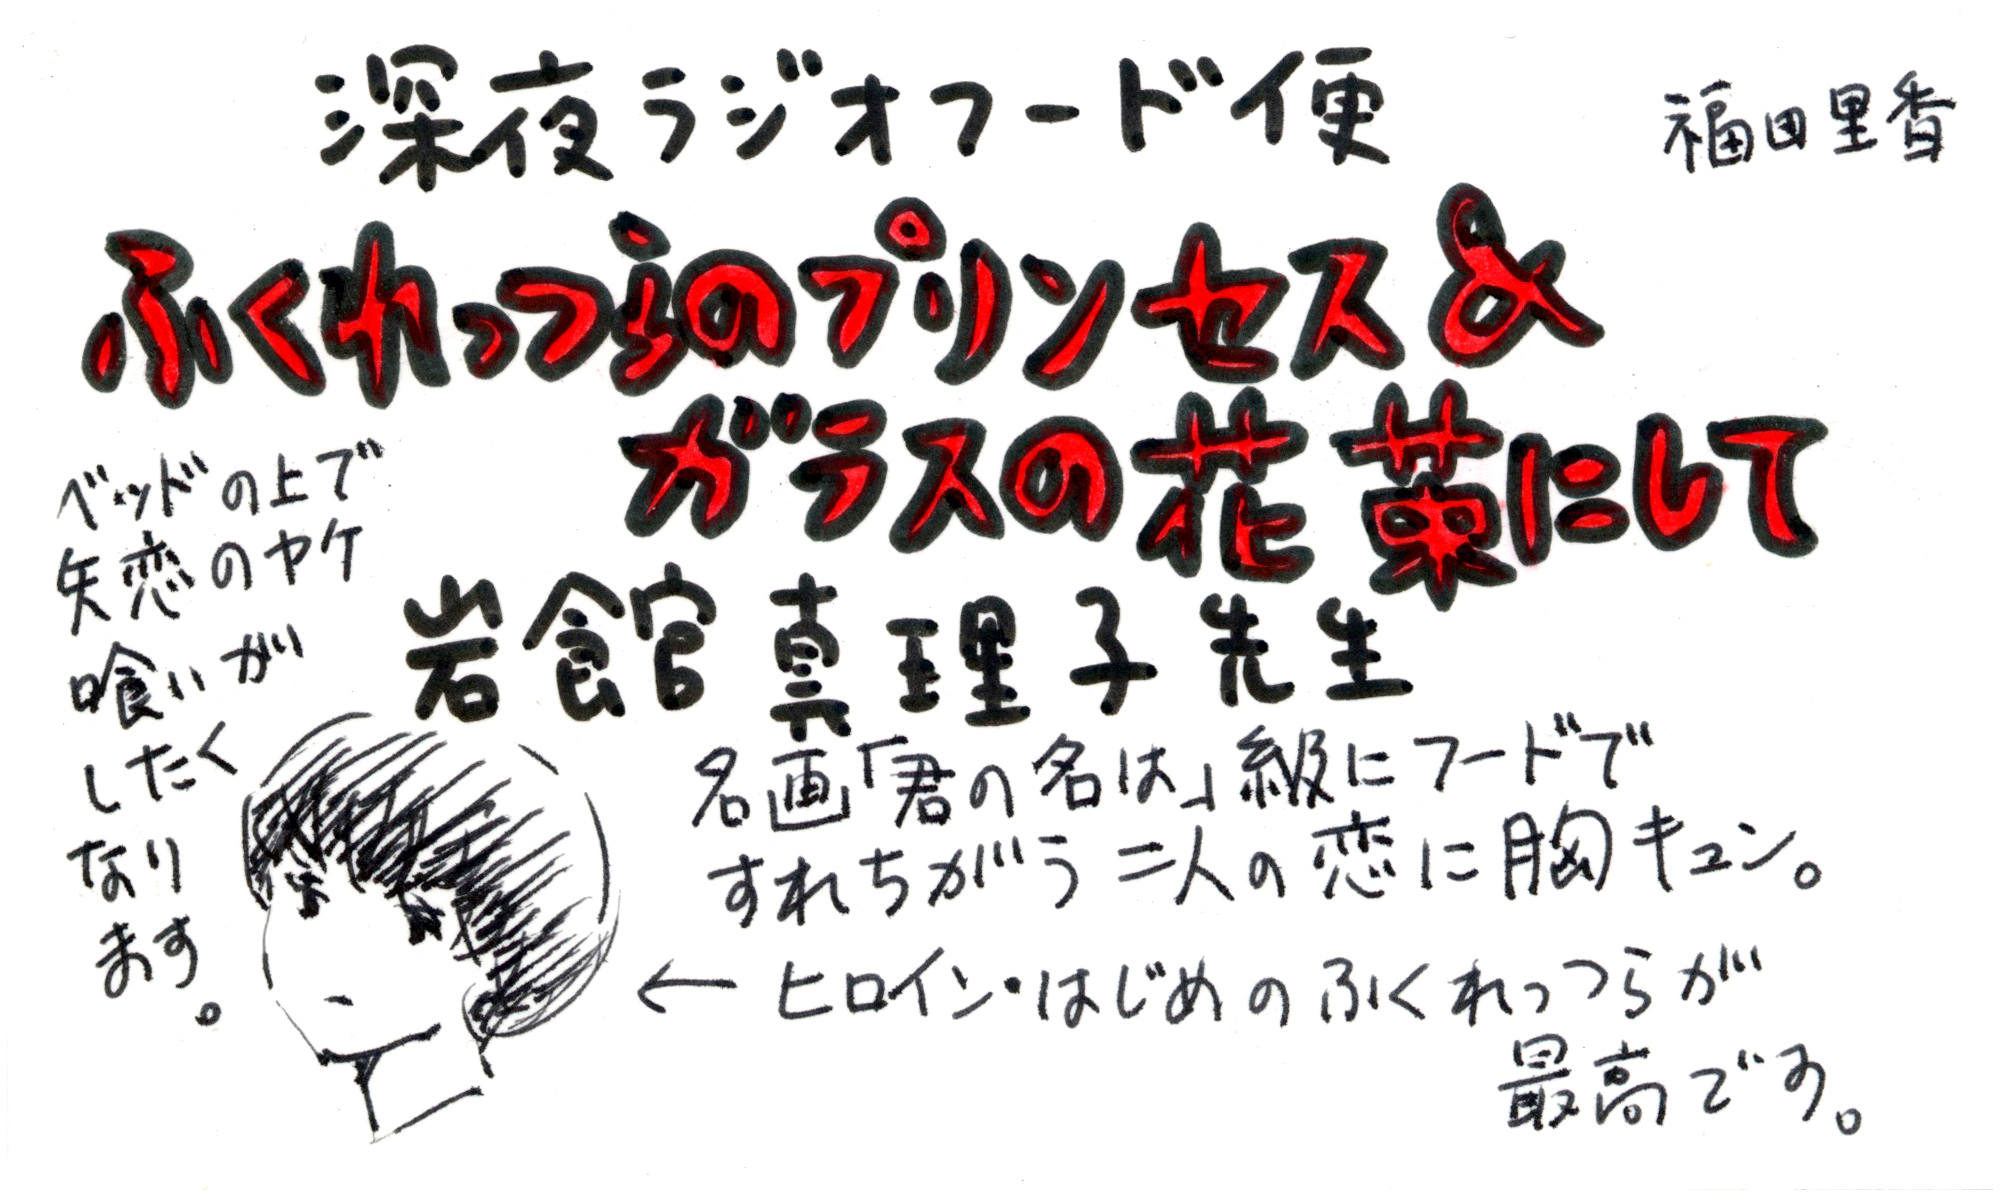 深夜ラジオフード便
福田里香
ふくれっつらのプリンセス&
ガラスの花菓にして
岩館真理子先生
ベッドの上で
失恋のヤケ
喰いが
したく
なり
ます。
名画「君の名は」級にフードで
すれちがう二人の恋に胸キュン。
← ヒロイン・はじめのふくれっつらが
最高です。